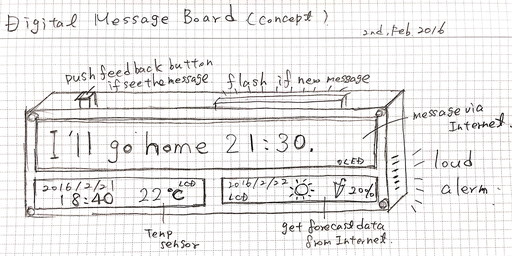 Digital Message Board (concept)
2nd. Feb. 2016
push feedback button
if see the message
flash if new message
I'll go home 21:30.
OLED
message via
Internet.
loud
alerm.
2016/2/21
18:40
22℃
LCD
2016/2/22
LCD
20%
Temp
sensor
get forecast data
from Internet.